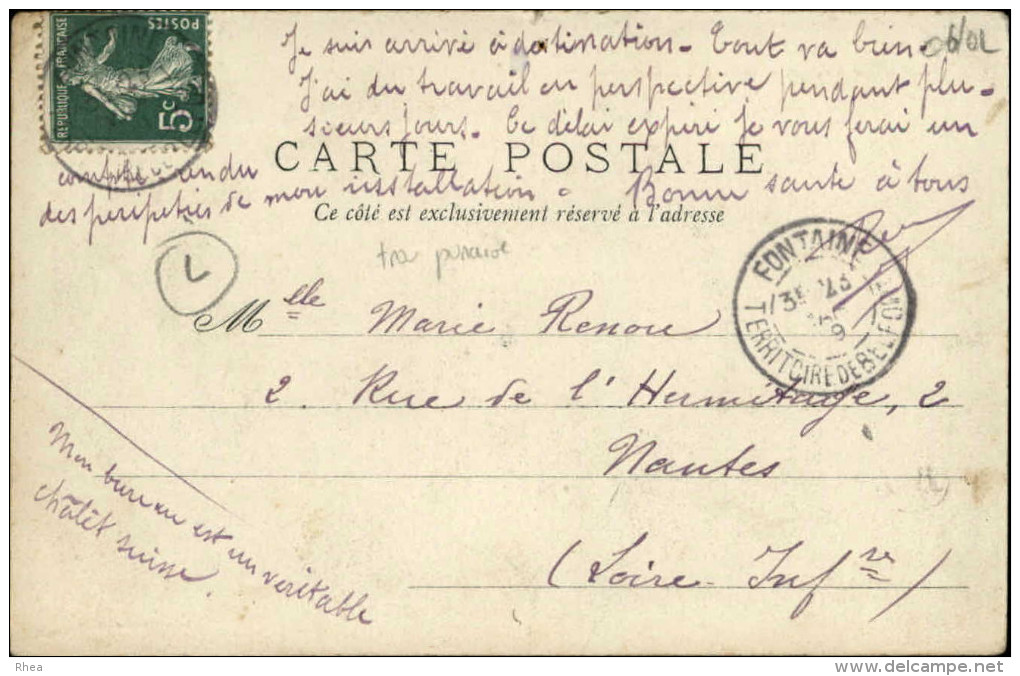 REPUBLIQUE FRANÇAISE
POSTES
5c
Je suis arrivé à destination. Tout va bien.
J'ai du travail en perspective pendant plu-
sieurs jours. Ce délai expiré je vous ferai un
compte rendu
des péripéties de mon installation. Bonne santé à tous
CARTE POSTALE
Ce côté est exclusivement réservé à l'adresse
L
FONTAINE
TERRITOIRE DE BELFORT
Mlle Marie Renou
2. Rue de l'Hermitage, 2
Nantes
(Loire Infre)
Mon bureau est un véritable
châlet suisse.
Rhea
www.delcampe.net